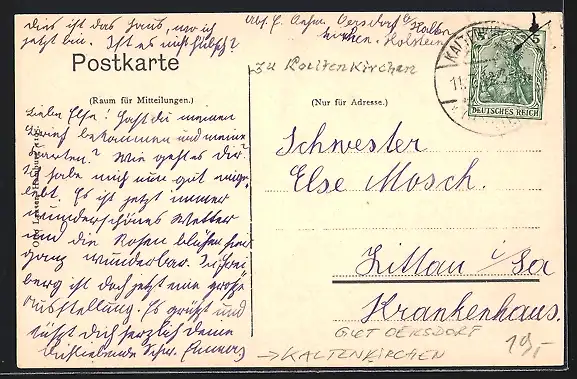 dies ist das Haus, wo ich
jetzt bin. Ist es nicht hübsch?
Abs. E. Oersdorf b/ Kalten
kirchen. Holstein
Postkarte
zu Kaltenkirchen
(Raum für Mitteilungen.)
(Nur für Adresse.)
DEUTSCHES REICH
5
Liebe Else! Hast du meinen
Brief bekommen und meine
Karten? Wie geht es dir?
Ich habe mich nun gut einge-
lebt. Es ist jetzt immer
wunderschönes Wetter
und die Rosen blühen hier
ganz wunderbar. In Frei-
berg ist doch jetzt eine große
Ausstellung. Es grüßt und
küßt Dich herzlich deine
Dich liebende Schw.
Schwester
Else Mosch.
Zittau i/Sa
Krankenhaus.
GUT OERSDORF
→ KALTENKIRCHEN
19,-